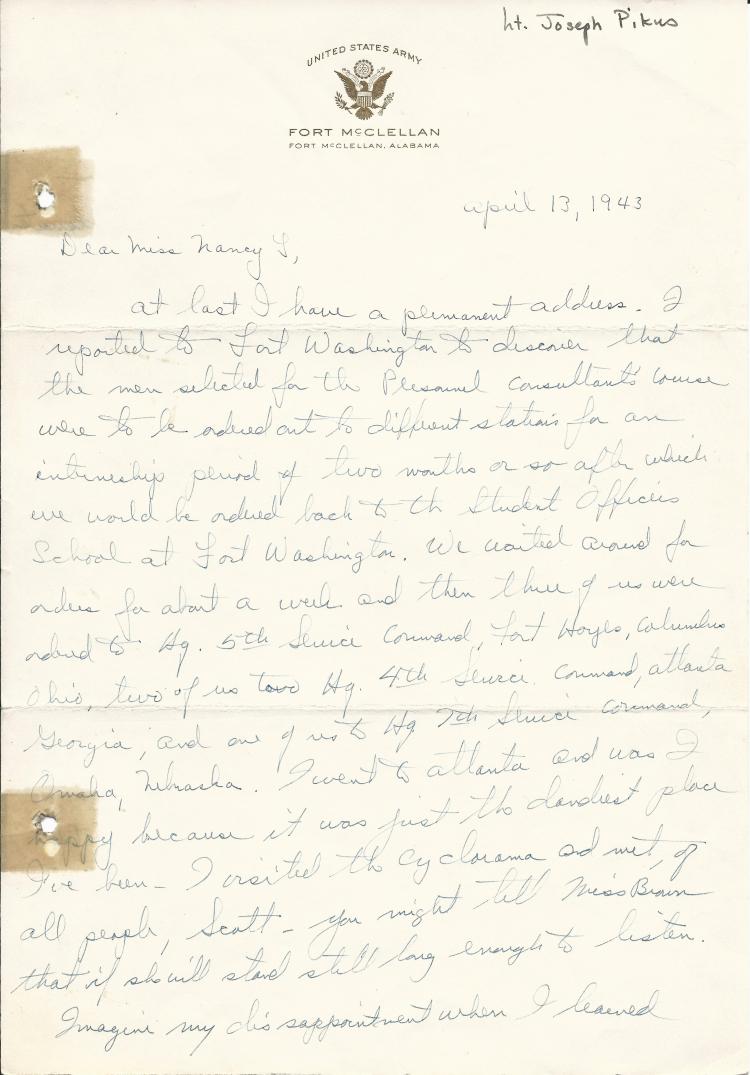 Lt. Joseph Pikus
UNITED STATES ARMY
FORT McCLELLAN
FORT McCLELLAN, ALABAMA
april 13, 1943
Dear Miss Nancy T,
at last I have a permanent address. I
reported to Fort Washington to discover that
the men selected for the Personnel Consultants course
were to be ordered out to different stations for an
interneship period of two months or so after which
we would be ordered back to th Student Officers
School at Fort Washington. We waited around for
orders for about a week and then three of us were
ordered to Hq. 5th Service Command, Fort Hayes, Columbus
Ohio, two of us to Hq. 4th Service Command, atlanta
Georgia, and one of us to Hq 7th Service Command,
Omaha, Nebraska. I went to atlanta and was I
happy because it was just the dandiest place
I've been - I visited the Cyclorama and met, of
all people, Scott - you might tell Miss Brown
that if she will stand still long enough to listen.
Imagine my disappointment when I learned